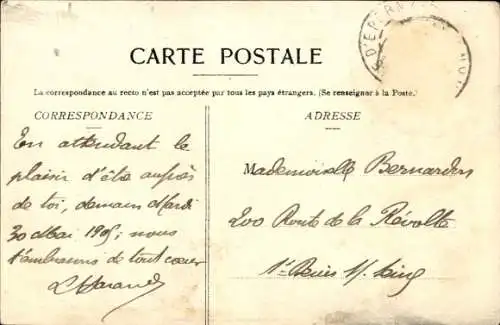 D'EPERNAY
CARTE POSTALE
La correspondance au recto n'est pas acceptée par tous les pays étrangers. (Se renseigner à la Poste.)
CORRESPONDANCE
ADRESSE
En attendant le
plaisir d'être auprès
de toi, demain Mardi
30 Mai 1905, nous
t'embrassons de tout coeur
Mademoiselle Bernardin
200 Route de la Révolte
St Denis s/ Seine